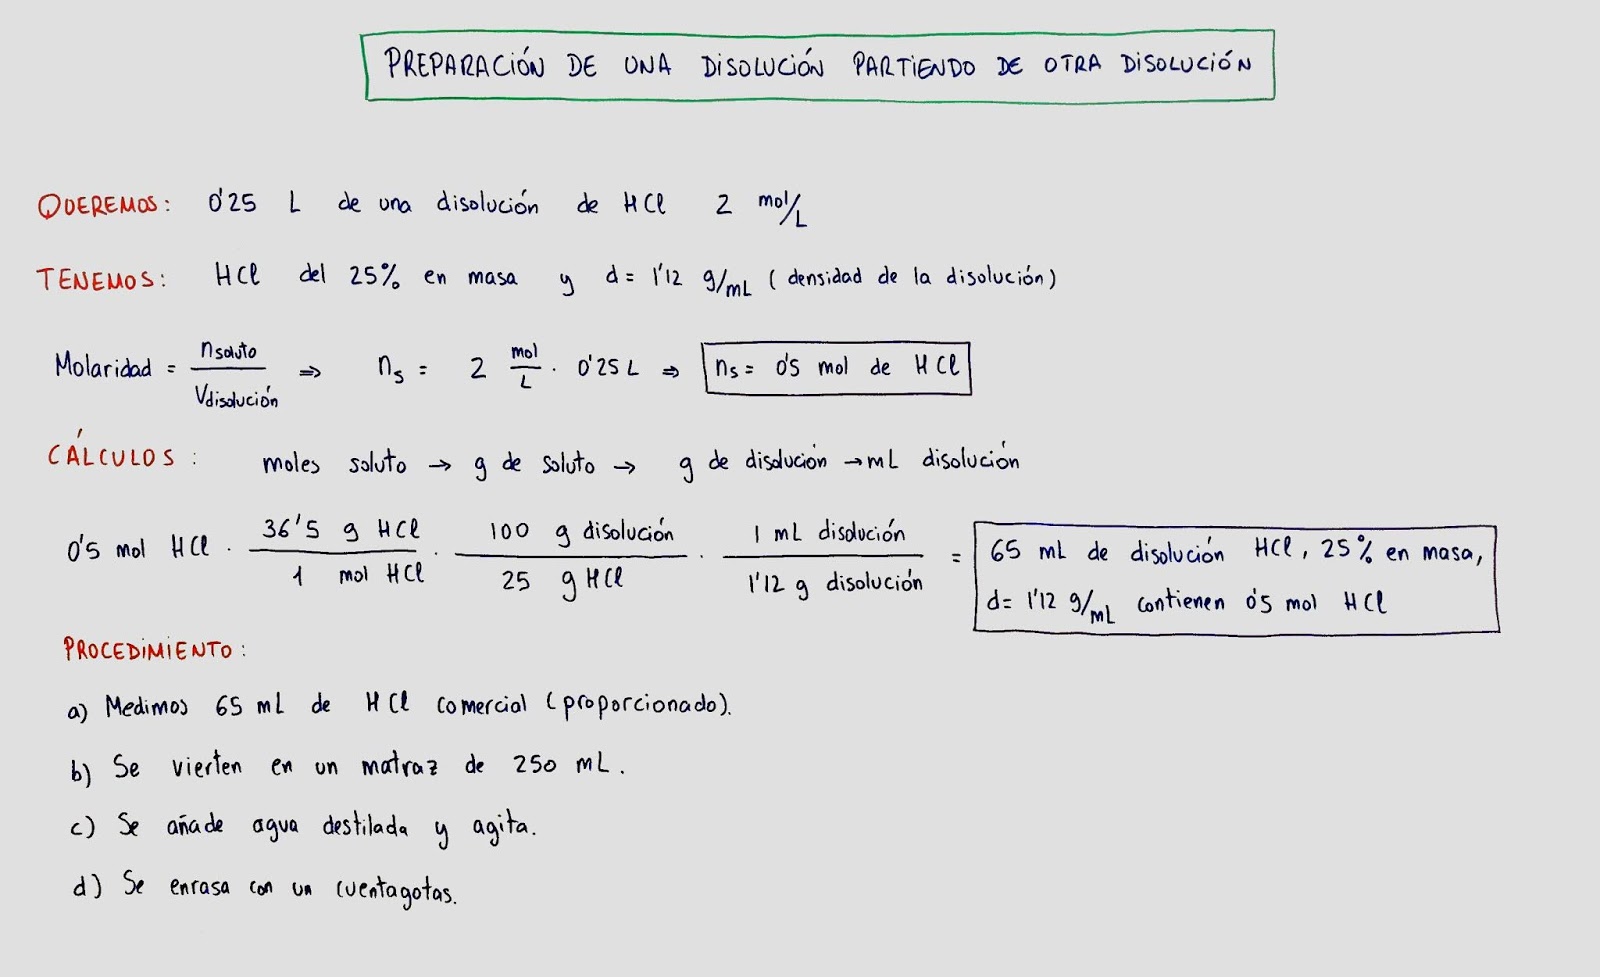 PREPARACIÓN DE UNA DISOLUCIÓN PARTIENDO DE OTRA DISOLUCIÓN
QUEREMOS: 0'25 L de una disolución de HCl 2 mol/L
TENEMOS: HCl del 25% en masa y d= 1'12 g/mL (densidad de la disolución)
Molaridad = n soluto / V disolución ⇒ ns = 2 mol/L · 0'25 L ⇒ ns = 0'5 mol de HCl
CÁLCULOS: moles soluto → g de soluto → g de disolución → mL disolución
0'5 mol HCl · 36'5 g HCl / 1 mol HCl · 100 g disolución / 25 g HCl · 1 mL disolución / 1'12 g disolución = 65 mL de disolución HCl, 25% en masa,
d= 1'12 g/mL contienen 0'5 mol HCl
PROCEDIMIENTO:
a) Medimos 65 mL de HCl comercial (proporcionado).
b) Se vierten en un matraz de 250 mL.
c) Se añade agua destilada y agita.
d) Se enrasa con un cuentagotas.